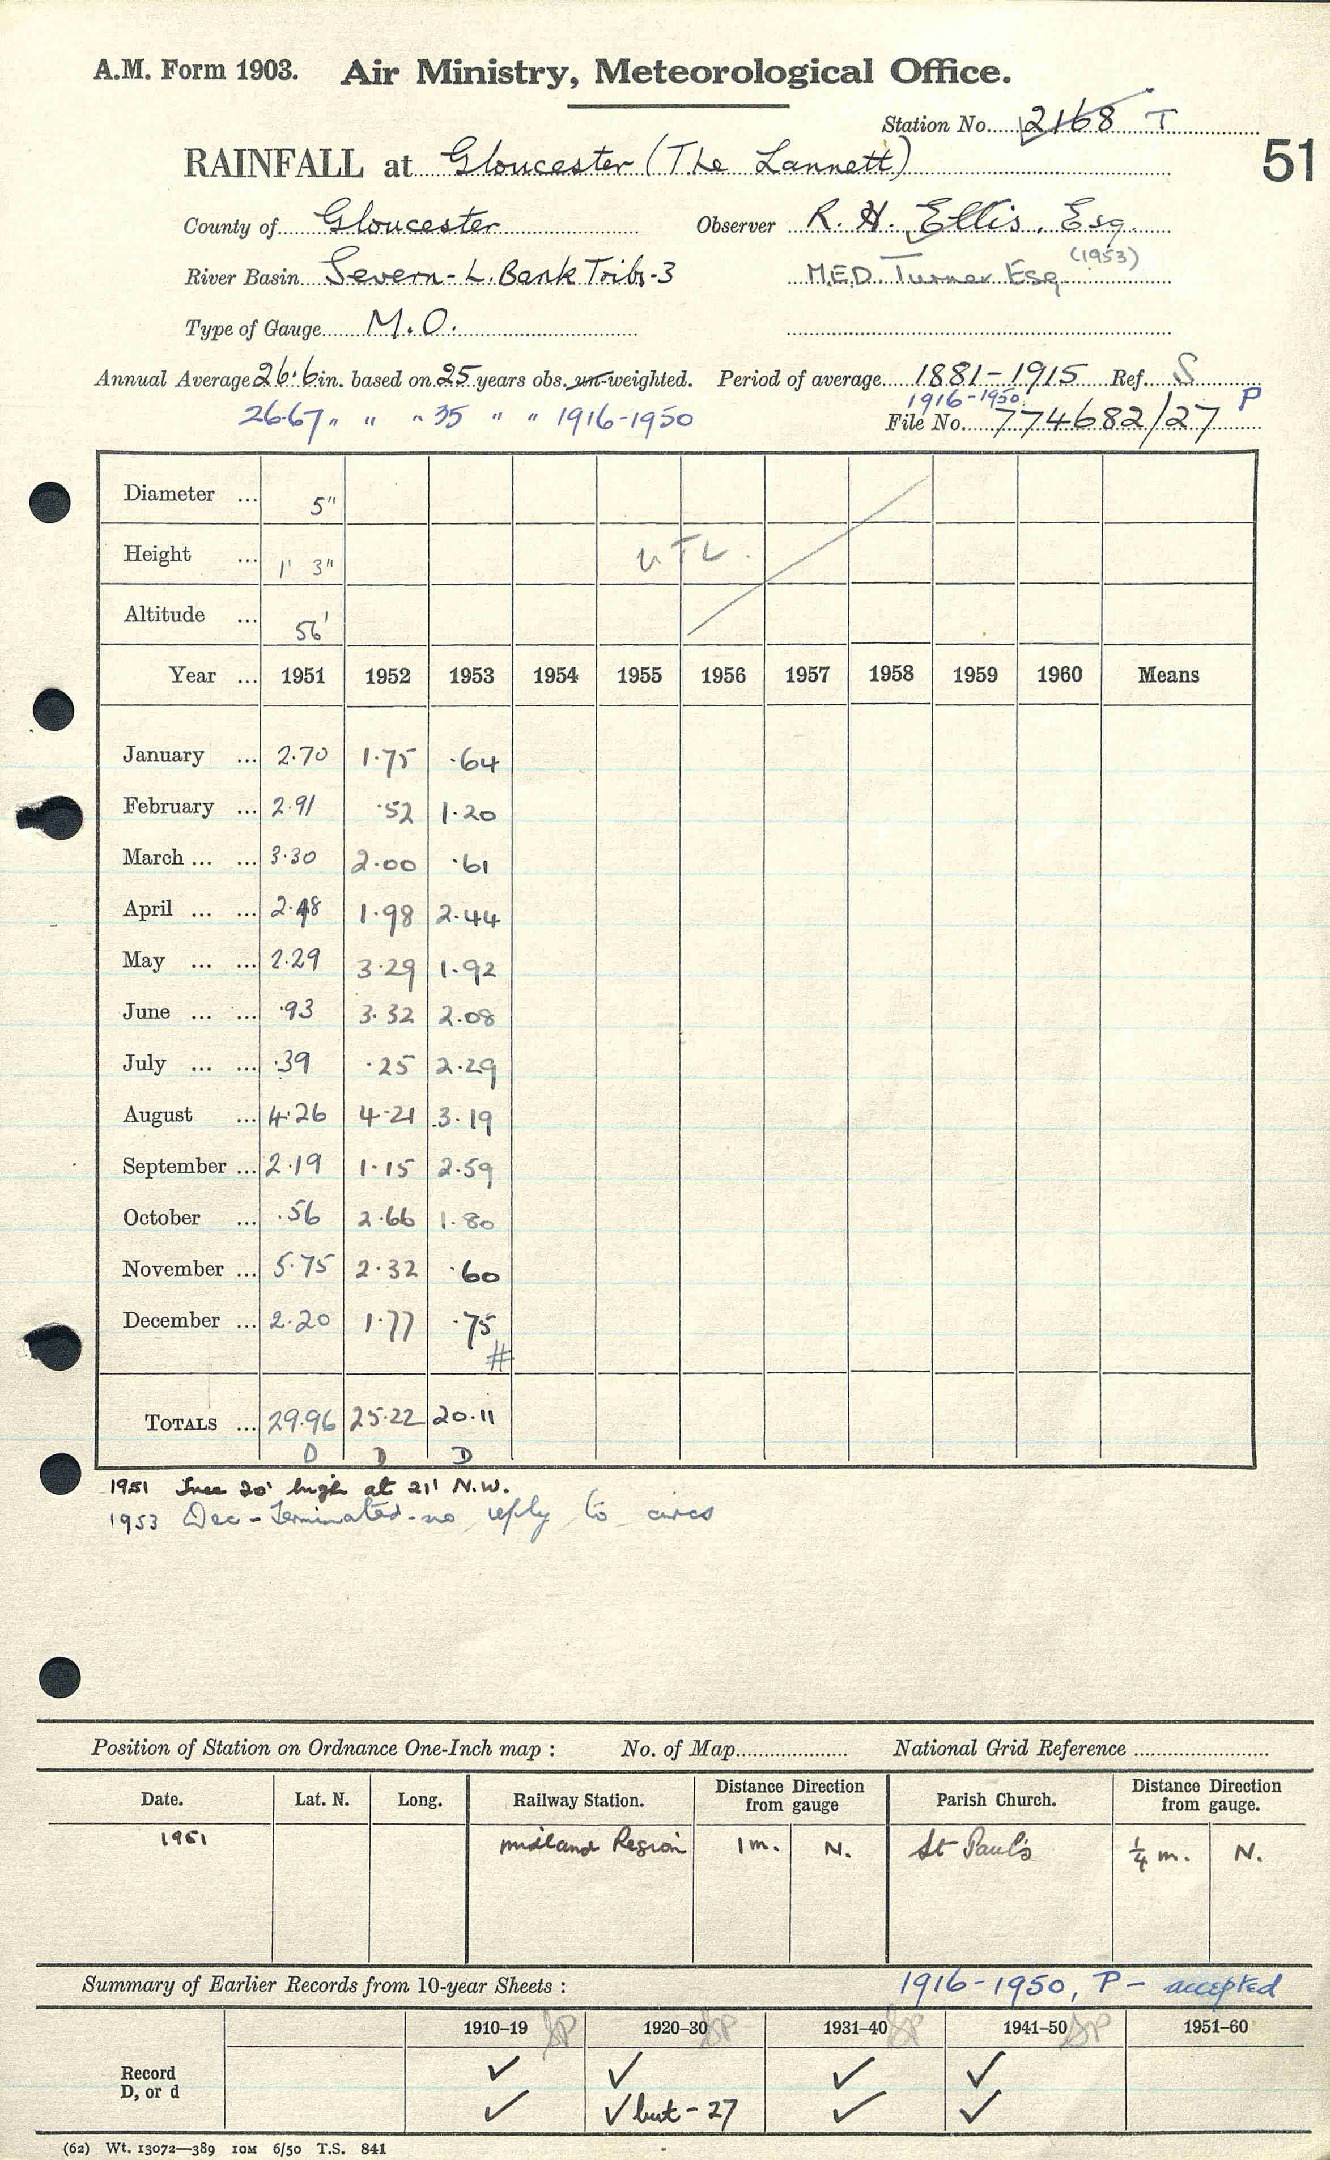 A.M. Form 1903. Air Ministry, Meteorological Office.
Station No. 2168 T
51
RAINFALL at Gloucester (The Lannett)
County of Gloucester Observer R. H. Ellis, Esq.
River Basin Severn-L. Bank Tribs-3 M.E.D. Turner Esq (1953)
Type of Gauge M.O.
Annual Average 26.6 in. based on 25 years obs. un-weighted. Period of average 1881-1915 Ref. S
1916-1950 P
26.67 " " " 35 " " 1916-1950 File No. 774682/27
Diameter ... 5"
Height ... 1' 3" UTL.
Altitude ... 56'
Year ... 1951 1952 1953 1954 1955 1956 1957 1958 1959 1960 Means
January ... 2.70 1.75 .64
February ... 2.91 .52 1.20
March ... ... 3.30 2.00 .61
April ... ... 2.48 1.98 2.44
May ... ... 2.29 3.29 1.92
June ... ... .93 3.32 2.08
July ... ... .39 .25 2.29
August ... 4.26 4.21 3.19
September ... 2.19 1.15 2.59
October ... .56 2.66 1.80
November ... 5.75 2.32 .60
December ... 2.20 1.77 .75
#
TOTALS ... 29.96 25.22 20.11
D D D
1951 Tree 20' high at 21' N.W.
1953 Dec - Terminated - no reply to circs
Position of Station on Ordnance One-Inch map : No. of Map National Grid Reference
Date. Lat. N. Long. Railway Station. Distance Direction from gauge Parish Church. Distance Direction from gauge.
1951 Midland Region 1 m. N. St Paul's ¼ m. N.
Summary of Earlier Records from 10-year Sheets : 1916-1950, P - accepted
1910-19 SP 1920-30 SP 1931-40 SP 1941-50 SP 1951-60
Record ✓ ✓ ✓ ✓
D, or d ✓ ✓ but - 27 ✓ ✓
(62) Wt. 13072—389 10M 6/50 T.S. 841